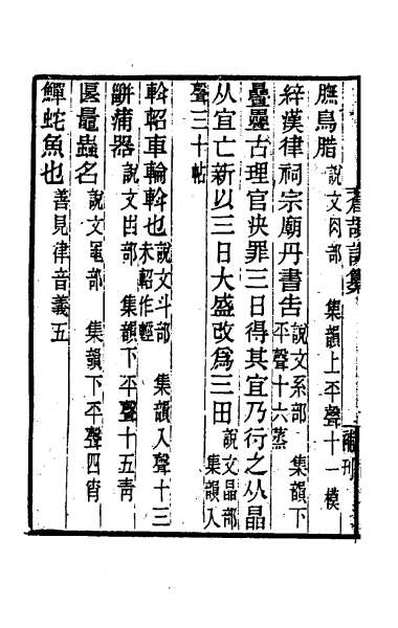 膴鳥腊說文肉部 集韻上平聲十一模
縡漢律祠宗廟丹書告說文系部 集韻下平聲十六蒸
疊㬪古理官決罪三日得其宜乃行之从晶
从宜亡新以三日大盛改爲三田說文晶部 集韻入
聲三十帖
斡軺車輪斡也說文斗部 集韻入聲十三末軺作輕
缾蒲器說文甾部 集韻下平聲十五青
鼂蟲名說文黽部 集韻下平聲四宵
鱓蛇魚也善見律音義五
補刊